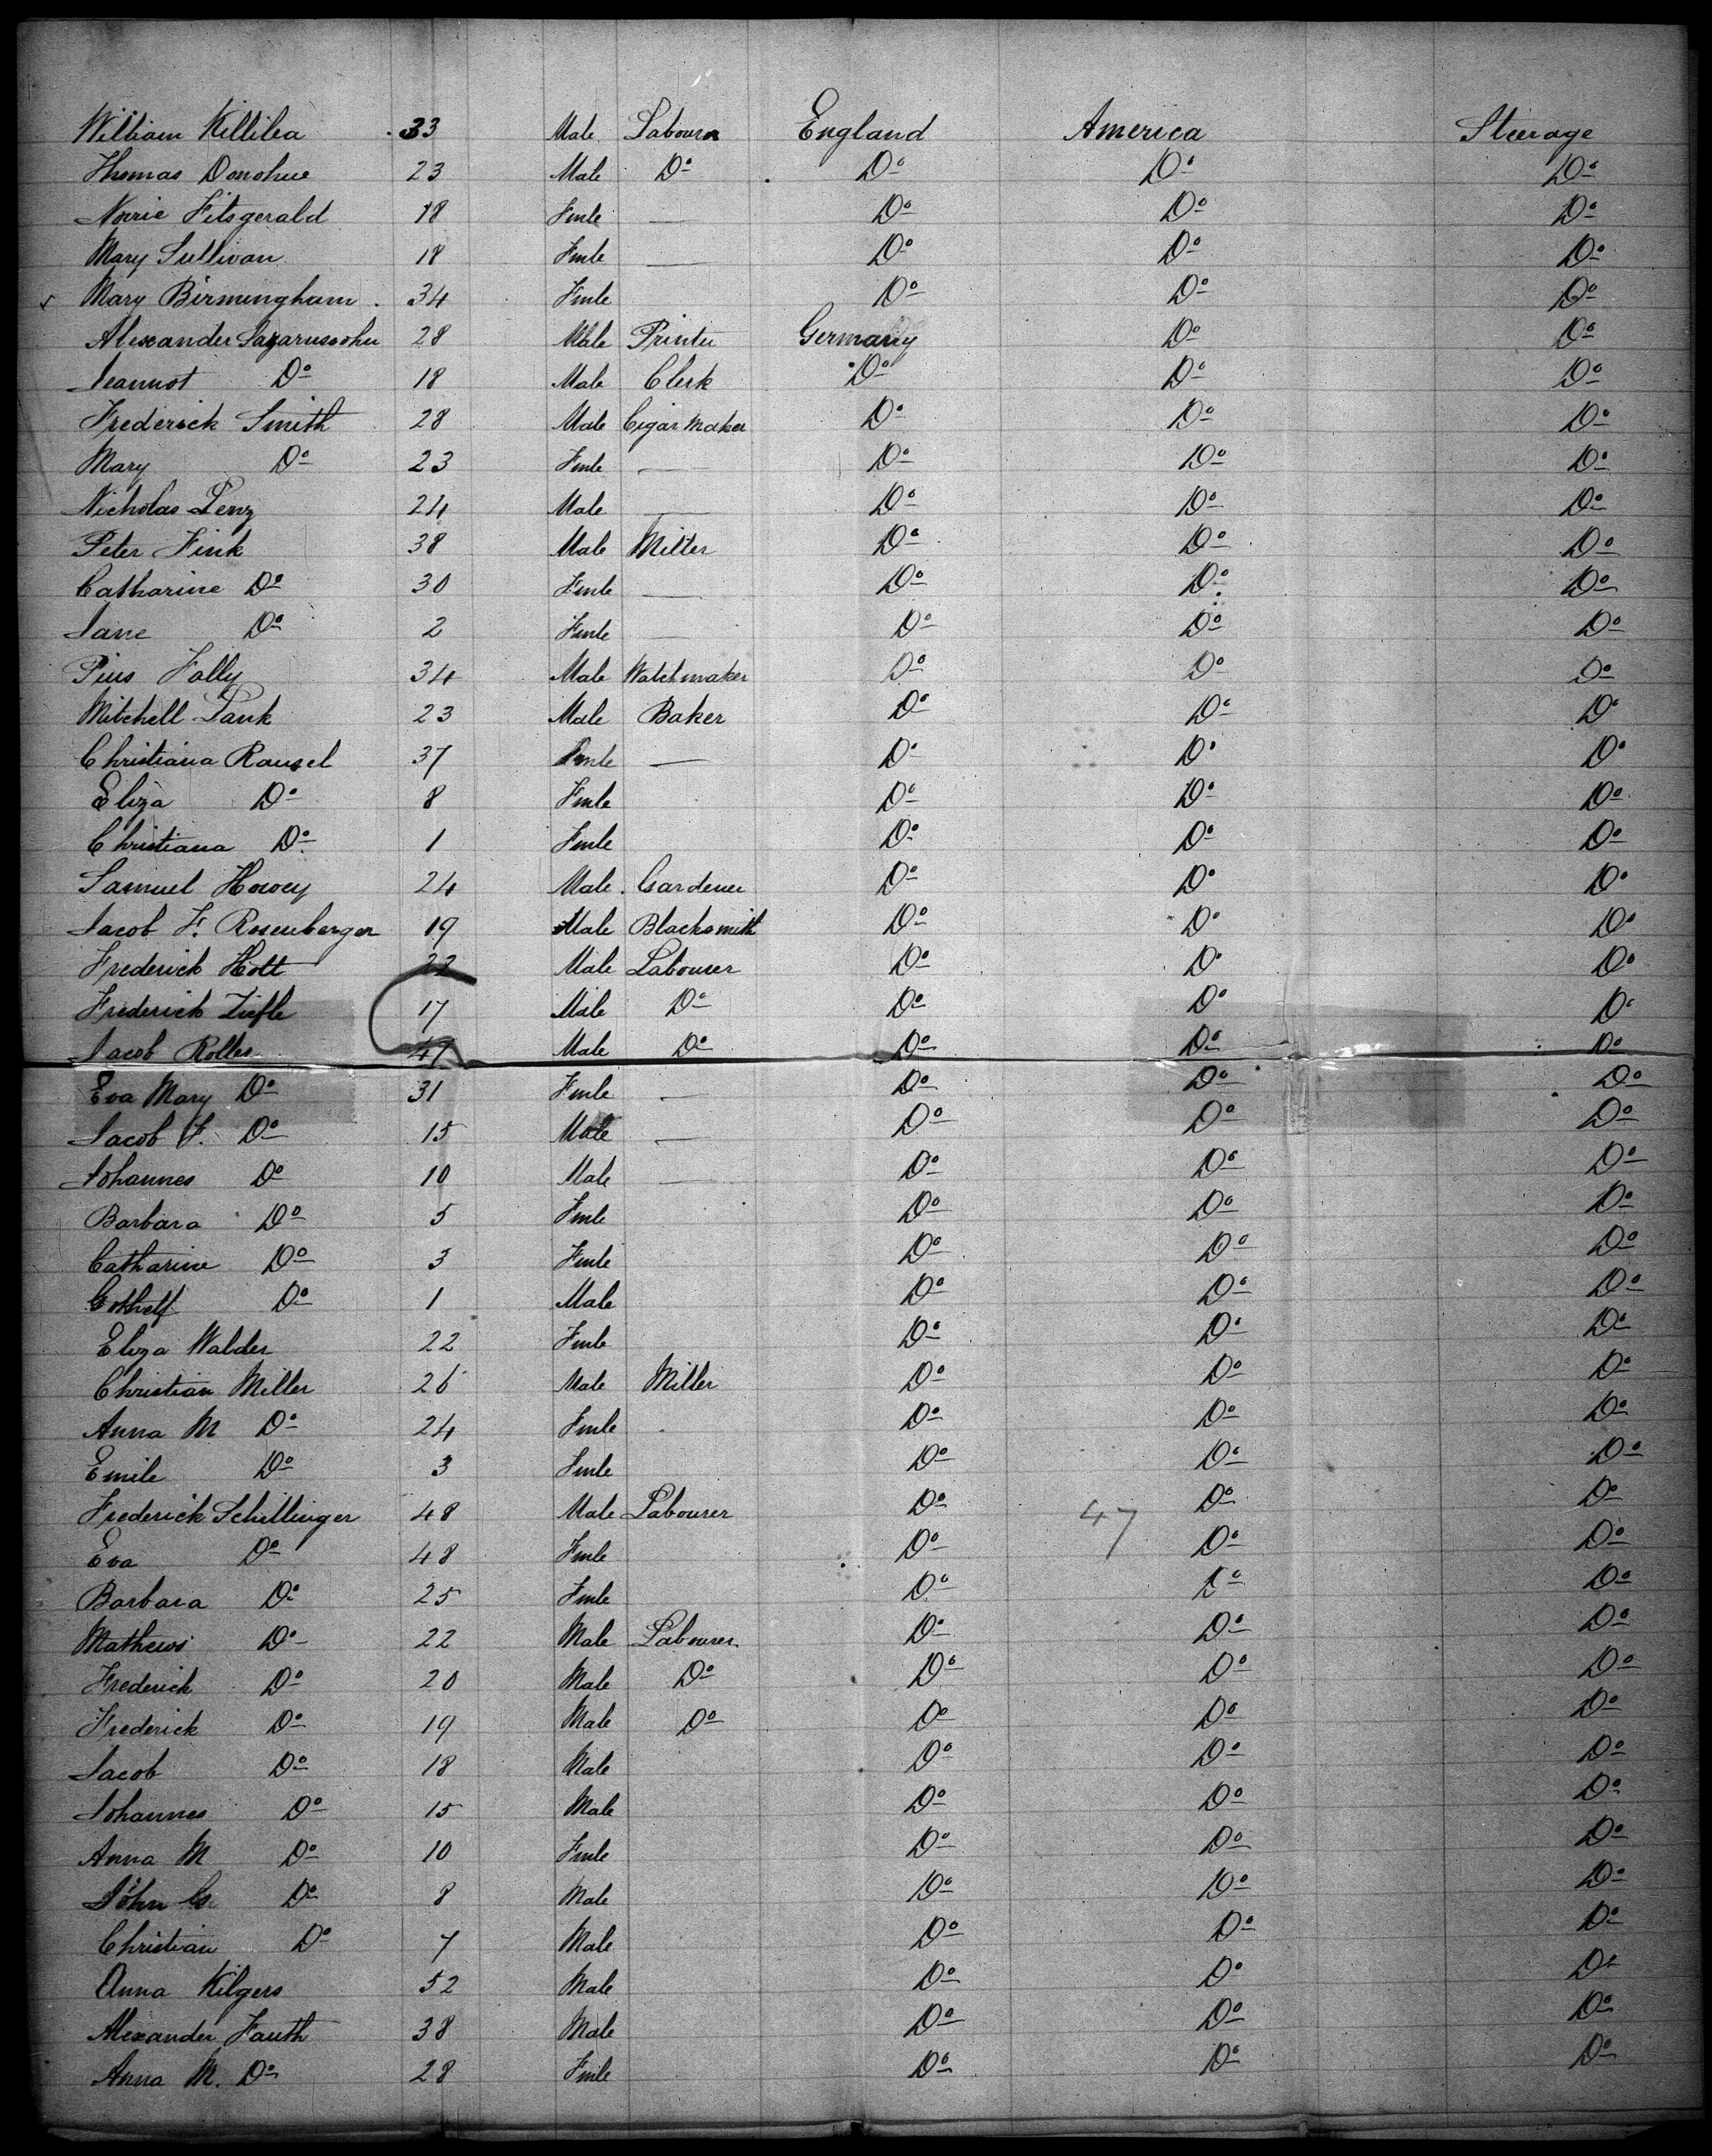 William Killilea 33 Male Labourer England America Steerage
Thomas Donohue 23 Male Do Do Do Do
Norie Fitsgerald 18 Fmle — Do Do Do
Mary Sullivan 18 Fmle — Do Do Do
Mary Birmingham 34 Fmle Do Do Do
Alexander Lazarussohn 28 Male Printer Germany Do Do
Jeannot Do 18 Male Clerk Do Do Do
Frederick Smith 28 Male Cigar Maker Do Do Do
Mary Do 23 Fmle — Do Do Do
Nicholas Lenz 24 Male — Do Do Do
Peter Fink 38 Male Miller Do Do Do
Catharine Do 30 Fmle — Do Do Do
Jane Do 2 Fmle — Do Do Do
Pius Folly 34 Male Watchmaker Do Do Do
Mitchell Pank 23 Male Baker Do Do Do
Christiana Rausel 37 Fmle — Do Do Do
Eliza Do 8 Fmle Do Do Do
Christiana Do 1 Fmle Do Do Do
Samuel Howey 24 Male Gardener Do Do Do
Jacob F. Rosenberger 19 Male Blacksmith Do Do Do
Frederick Hott 22 Male Labourer Do Do Do
Frederick Ziefle 17 Male Do Do Do Do
Jacob Roller 47 Male Do Do Do Do
Eva Mary Do 31 Fmle — Do Do Do
Jacob F. Do 15 Male — Do Do Do
Johannes Do 10 Male — Do Do Do
Barbara Do 5 Fmle Do Do Do
Catharine Do 3 Fmle Do Do Do
Gothelf Do 1 Male Do Do Do
Eliza Walder 22 Fmle Do Do Do
Christian Miller 26 Male Miller Do Do Do
Anna M Do 24 Fmle Do Do Do
Emile Do 3 Fmle Do Do Do
Frederick Schillinger 48 Male Labourer Do 47 Do Do
Eva Do 48 Fmle Do Do Do
Barbara Do 25 Fmle Do Do Do
Mathews Do 22 Male Labourer Do Do Do
Frederick Do 20 Male Do Do Do Do
Frederick Do 19 Male Do Do Do Do
Jacob Do 18 Male Do Do Do
Johannes Do 15 Male Do Do Do
Anna M Do 10 Fmle Do Do Do
John G. Do 8 Male Do Do Do
Christian Do 7 Male Do Do Do
Anna Kilgers 52 Male Do Do Do
Alexander Fauth 38 Male Do Do Do
Anna M. Do 28 Fmle Do Do Do